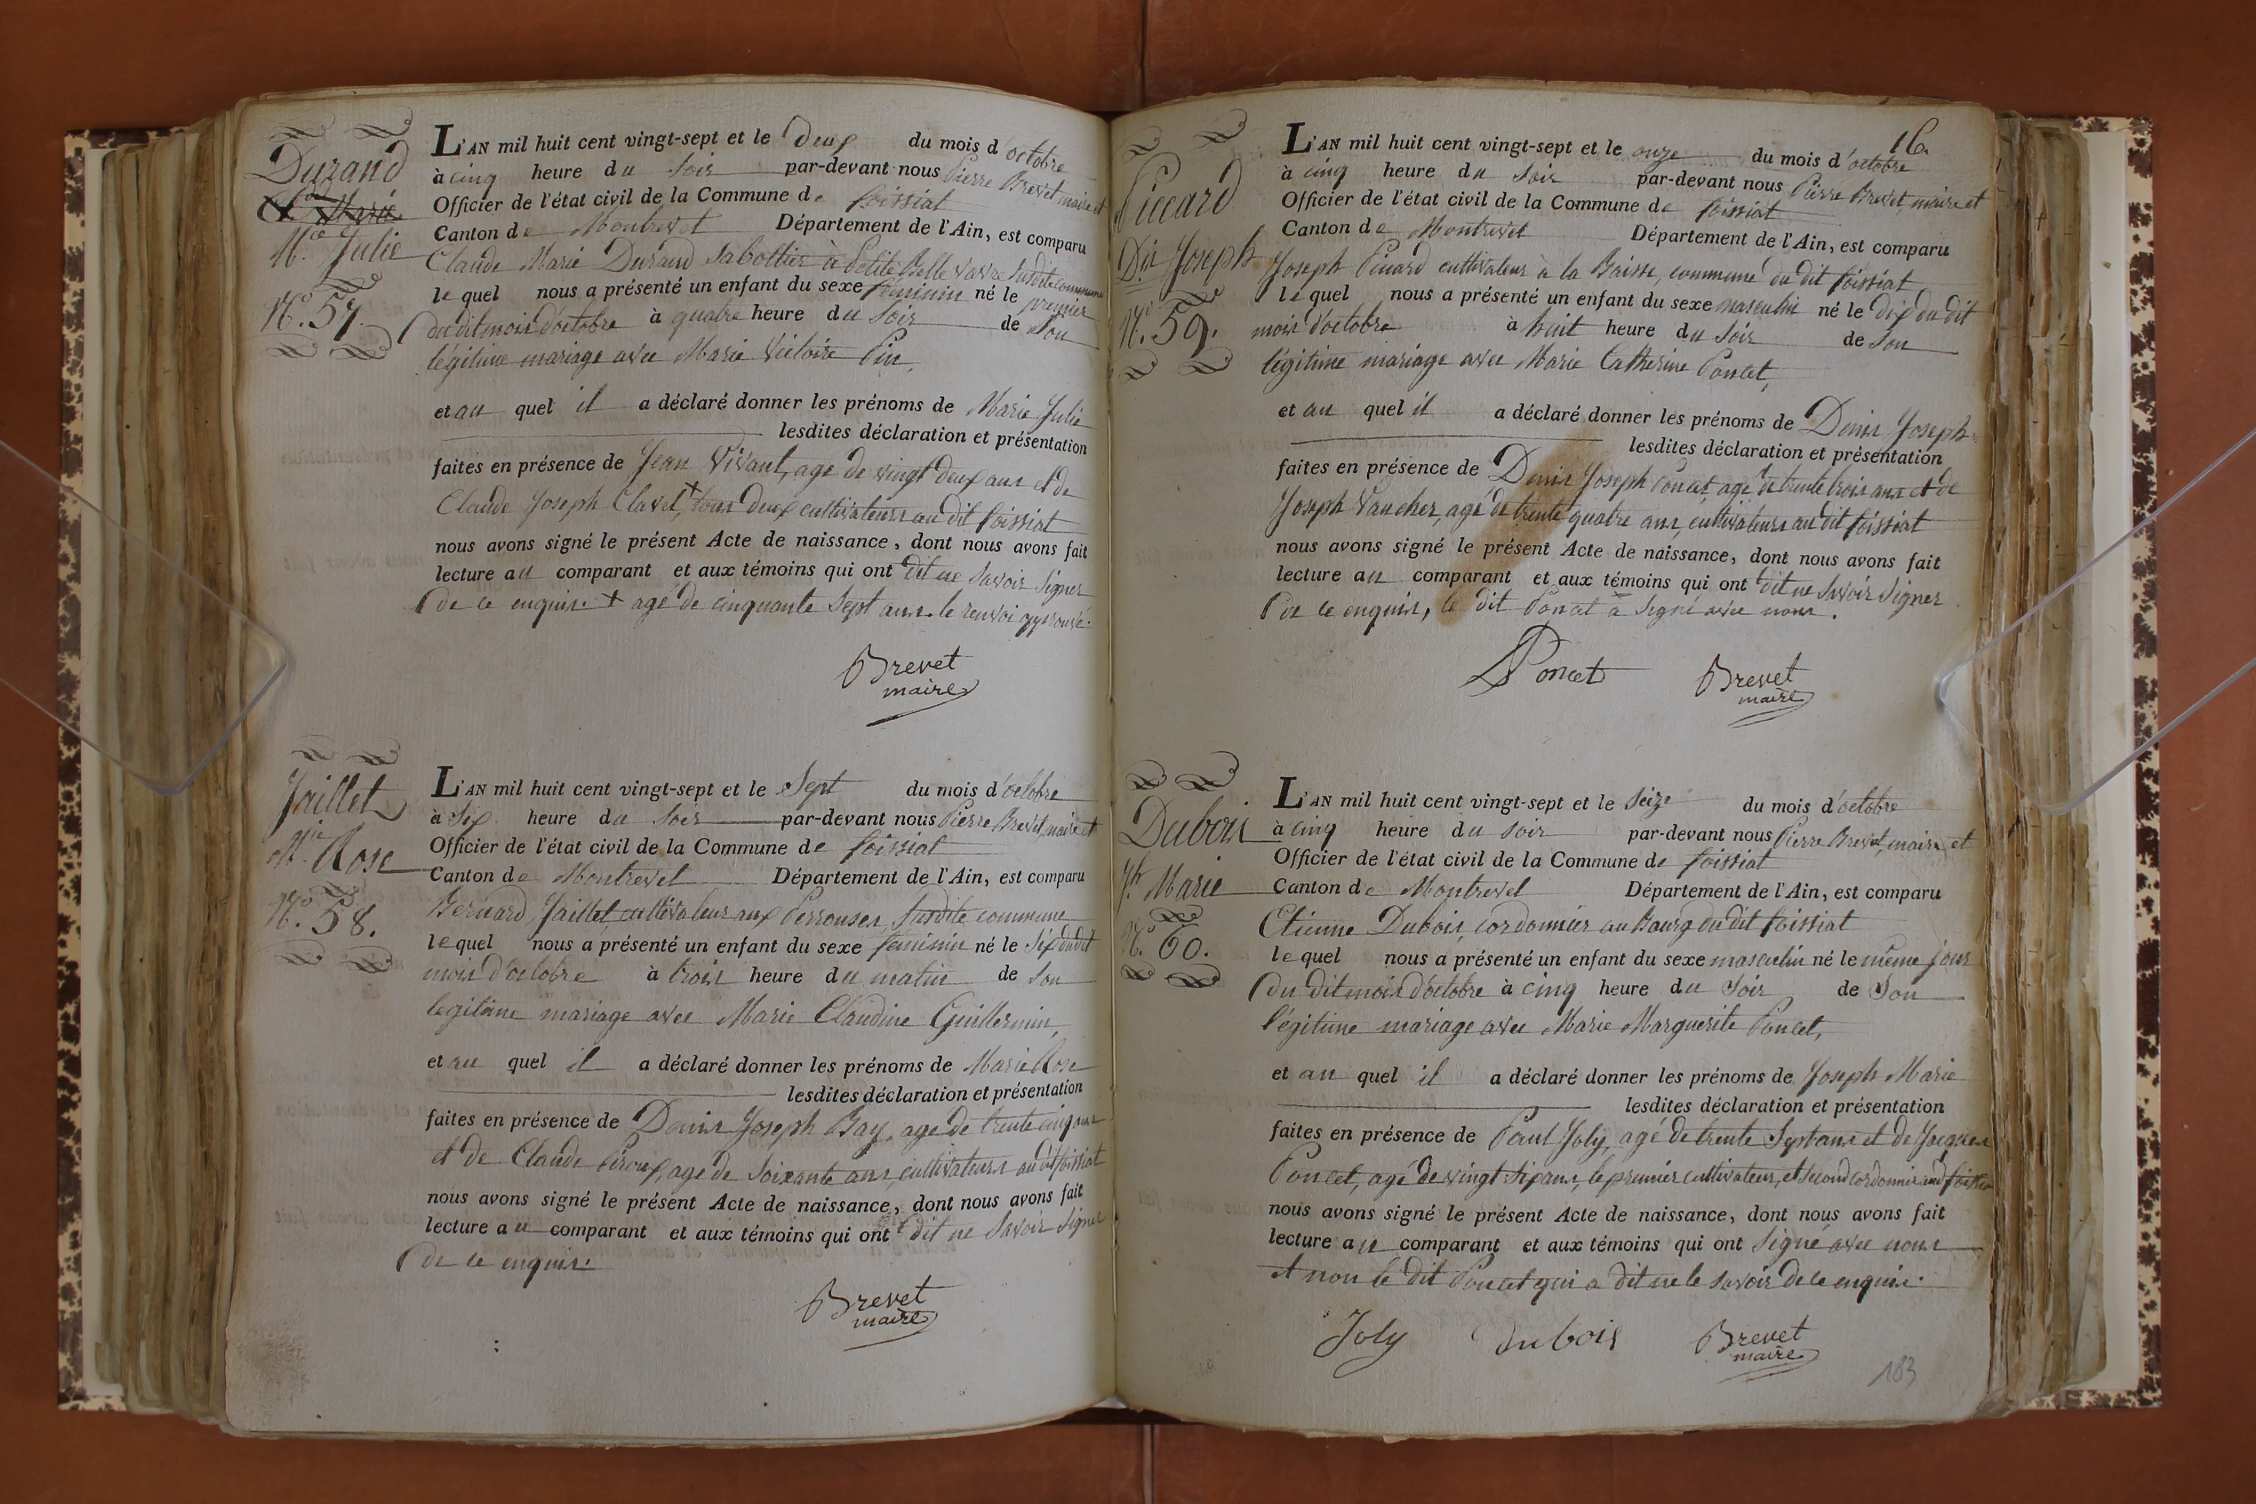 Durand
Mie Julie
No. 57.
L'AN mil huit cent vingt-sept et le Deux du mois d octobre
à cinq heure du Soir par-devant nous Pierre Brevet, maire et
Officier de l'état civil de la Commune de foissiat
Canton de Montrevel Département de l'Ain, est comparu
Claude Marie Durand Sabottier à Petite Belle vavre Susdite commune
le quel nous a présenté un enfant du sexe féminin né le premier
du dit mois d'octobre à quatre heure du Soir de Son
légitime mariage avec Marie Victoire Pin,
et au quel il a déclaré donner les prénoms de Marie Julie
lesdites déclaration et présentation
faites en présence de Jean Vivant, age de vingt deux ans et de
Claude Joseph Clavel, + tous deux cultivateurs au dit foissiat
nous avons signé le présent Acte de naissance, dont nous avons fait
lecture au comparant et aux témoins qui ont dit ne Savoir Signer
de ce enquis. + agé de cinquante Sept ans. le renvoi approuvé.
Brevet
maire
Jaillet
Mie Rose
No. 58.
L'AN mil huit cent vingt-sept et le Sept du mois d'octobre
à Six heure du Soir par-devant nous Pierre Brevet, maire et
Officier de l'état civil de la Commune de foissiat
Canton de Montrevel Département de l'Ain, est comparu
Bernard Jaillet, cultivateur aux Perrouses, Susdite commune
le quel nous a présenté un enfant du sexe féminin né le Six du dit
mois d'octobre à trois heure du matin de Son
legitime mariage avec Marie Claudine Guillermin,
et au quel il a déclaré donner les prénoms de Marie Rose
lesdites déclaration et présentation
faites en présence de Denis Joseph Bay, age de trente cinq ans
et de Claude Piroux, age de Soixante ans, cultivateurs au dit foissiat
nous avons signé le présent Acte de naissance, dont nous avons fait
lecture au comparant et aux témoins qui ont dit ne Savoir Signer
de ce enquis.
Brevet
maire
16
Piccard
Dis Joseph
No. 59.
L'AN mil huit cent vingt-sept et le onze du mois d'octobre
à cinq heure du Soir par-devant nous Pierre Brevet, maire et
Officier de l'état civil de la Commune de foissiat
Canton de Montrevel Département de l'Ain, est comparu
Joseph Picard cultivateur à la Baisse, commune du dit foissiat
le quel nous a présenté un enfant du sexe masculin né le dix du dit
mois d'octobre à huit heure du Soir de Son
légitime mariage avec Marie Catherine Poncet,
et au quel il a déclaré donner les prénoms de Denis Joseph
lesdites déclaration et présentation
faites en présence de Denis Joseph Poncet, agé de trente trois ans et de
Joseph Vaucher, agé de trente quatre ans, cultivateurs au dit foissiat
nous avons signé le présent Acte de naissance, dont nous avons fait
lecture au comparant et aux témoins qui ont dit ne Savoir Signer
de ce enquis, le dit Poncet a Signé avec nous.
Poncet Brevet
maire
Dubois
Jh Marie
No. 60.
L'AN mil huit cent vingt-sept et le Seize du mois d'octobre
à cinq heure du Soir par-devant nous Pierre Brevet, maire et
Officier de l'état civil de la Commune de foissiat
Canton de Montrevel Département de l'Ain, est comparu
Etienne Dubois, cordonnier au Bourg du dit foissiat
le quel nous a présenté un enfant du sexe masculin né le même jour
du dit mois d'octobre à cinq heure du Soir de Son
légitime mariage avec Marie Marguerite Poncet,
et au quel il a déclaré donner les prénoms de Joseph Marie
lesdites déclaration et présentation
faites en présence de Paul Joly, agé de trente Sept ans et de Jacques
Poncet, agé de vingt Six ans, le premier cultivateur, et Second cordonnier aud. foissiat
nous avons signé le présent Acte de naissance, dont nous avons fait
lecture au comparant et aux témoins qui ont Signé avec nous
et non le dit Poncet qui a dit ne le savoir de ce enquis.
Joly Dubois Brevet
maire
183